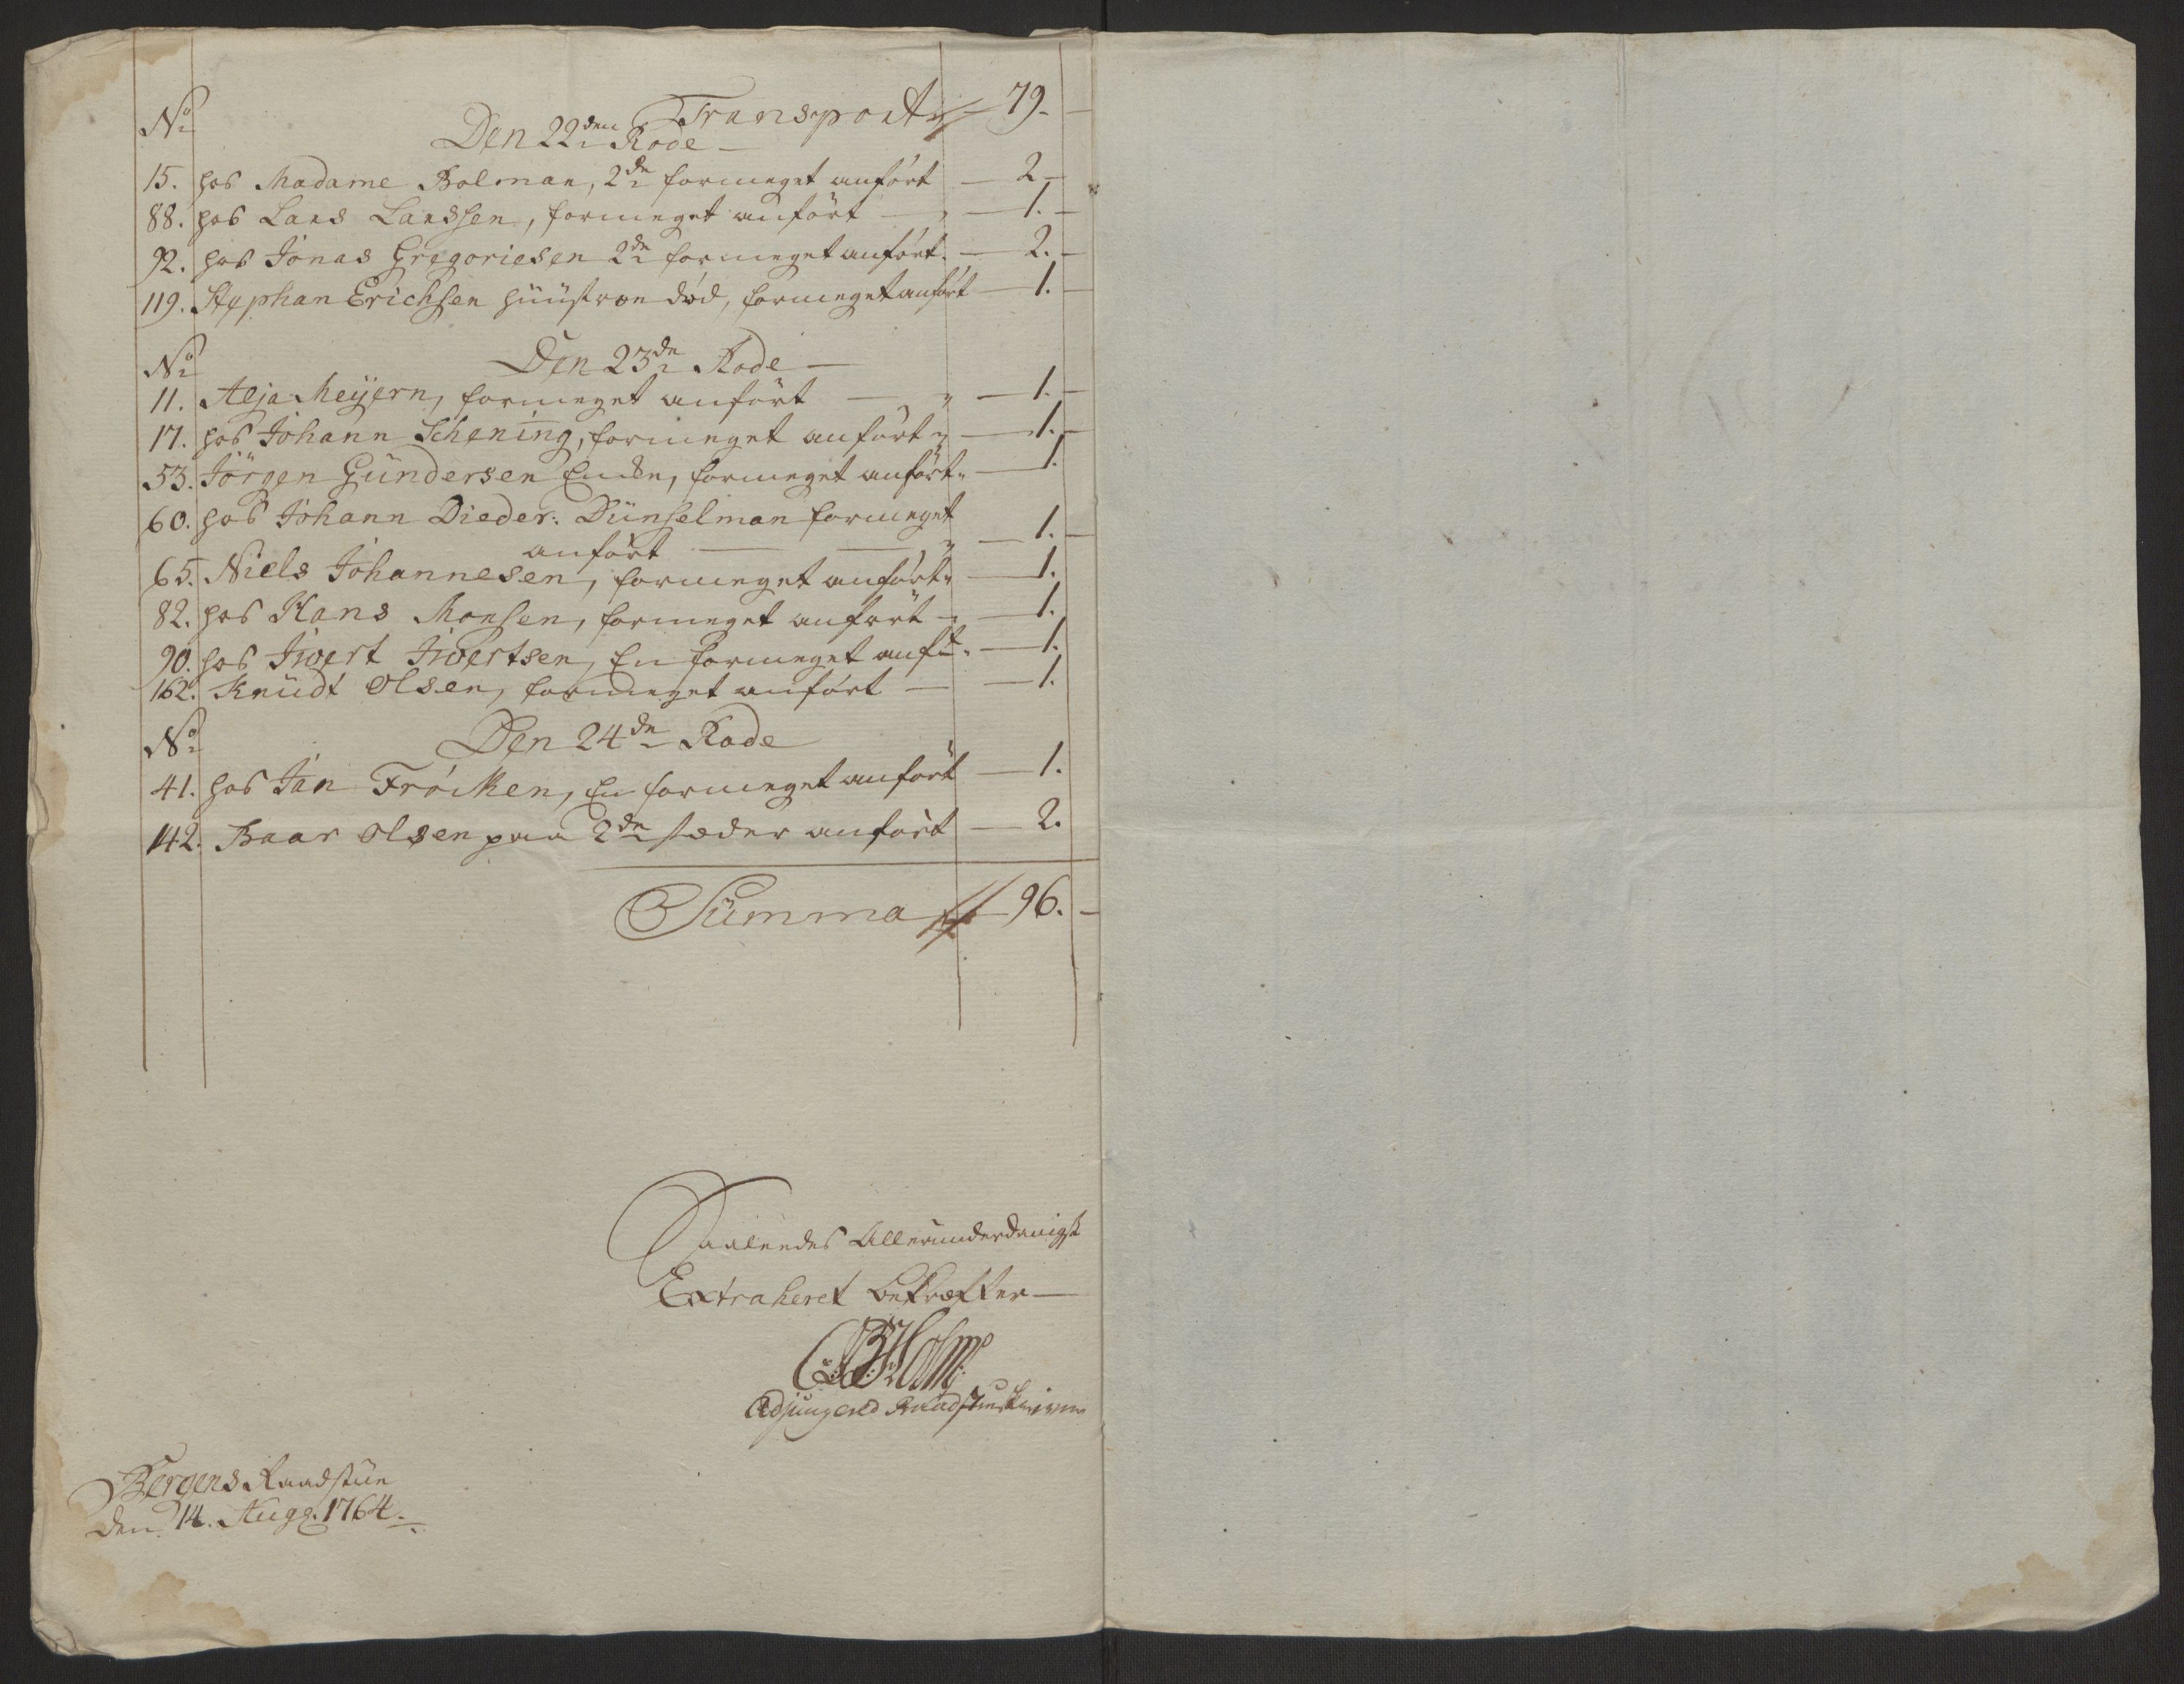 Transport 79.
No Den 22den Rode
15. hos Madame Bolman, 2de formeget anført 2
88. hos Lars Larssen, formeget anført 1.
92. hos Jonas Gregoriesen 2de formeget anført. 2.
119. Styphan Erichsen Hüüstroe død, formeget anført 1.
No Den 23de Rode
11. Alja Meÿern, formeget anført 1.
17. hos Johann Schening, formeget anført 1.
53. Jörgen Gündersen Encke, formeget anført 1.
60. hos Johann Dieder: Dünselman formeget
anført 1.
65. Niels Johannesen, formeget anført 1.
82. hos Hans Monsen, formeget anført 1.
90. hos Iwert Iwertsen, En formeget anft. 1.
162. Knüdt Olsen, formeget anført 1.
No Den 24de Rode
41. hos Jan Frøcken, En formeget anført 1.
142. Baar Olsen paa 2de stæder anført 2.
Summa 96.
Saaleedes Allerunderdanigst
Extraheret bekræfter
Holm
Adjungered Raadstueskriver
Bergens Raadstüe
den 14. Augg. 1764.